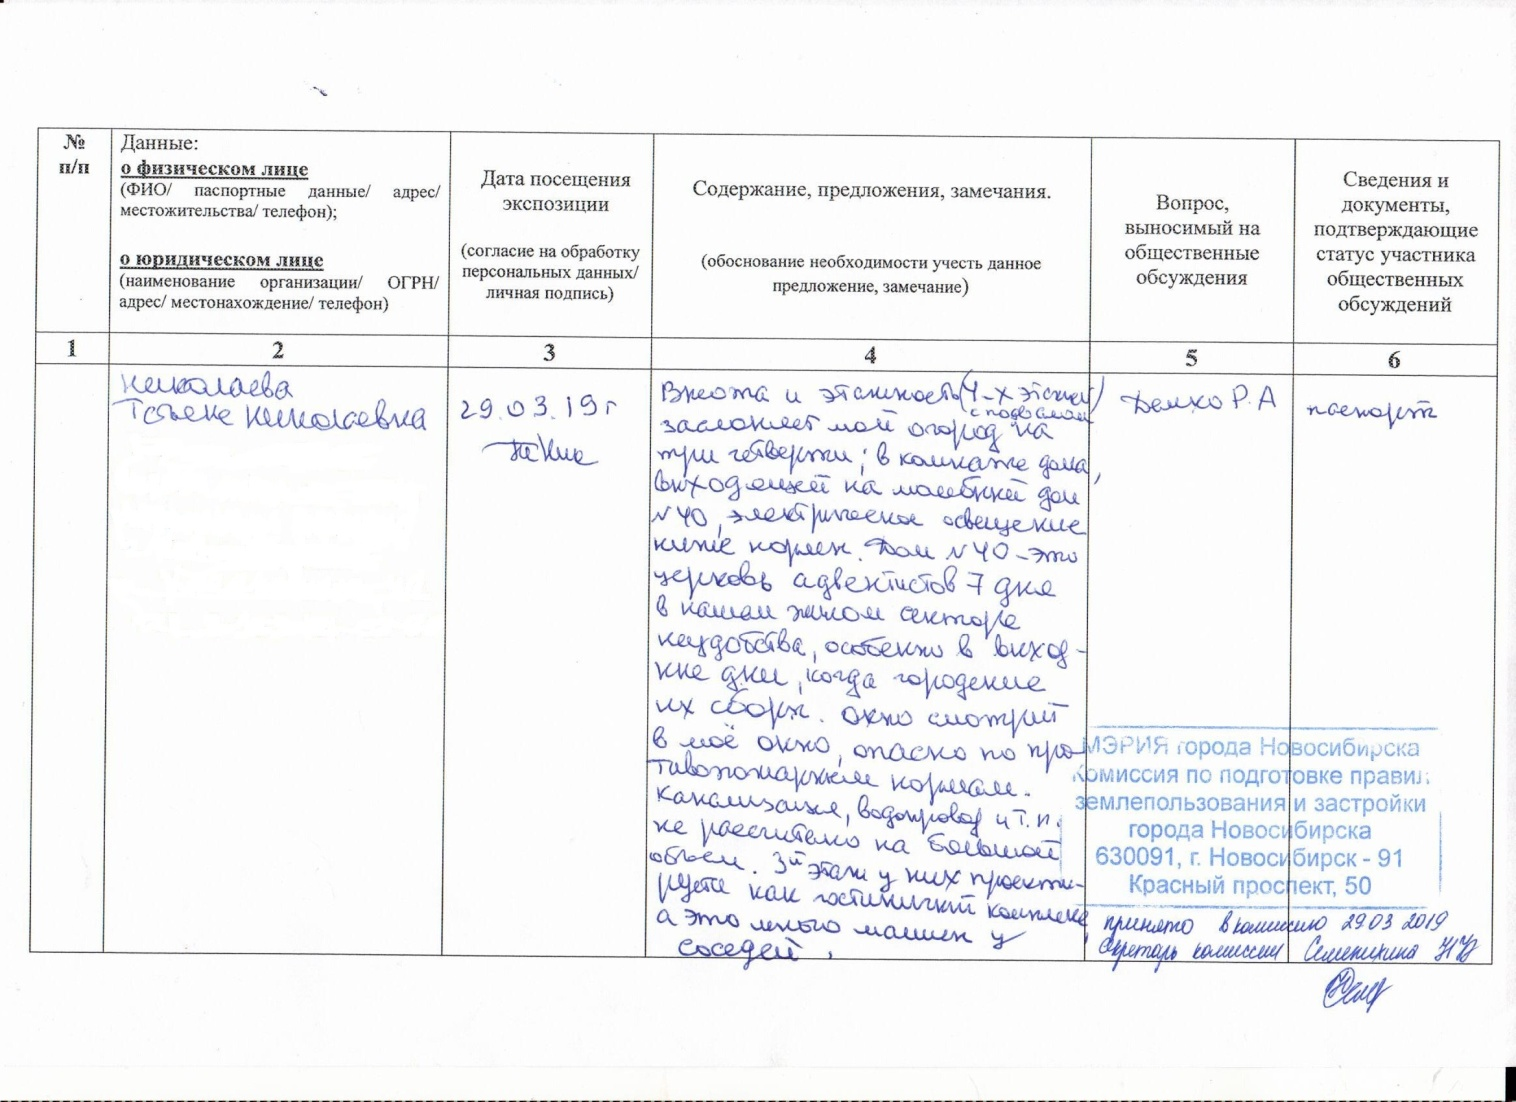 №
п/п
Данные:
о физическом лице
(ФИО/ паспортные данные/ адрес/
местожительства/ телефон);
о юридическом лице
(наименование организации/ ОГРН/
адрес/ местонахождение/ телефон)
Дата посещения
экспозиции
(согласие на обработку
персональных данных/
личная подпись)
Содержание, предложения, замечания.
(обоснование необходимости учесть данное
предложение, замечание)
Вопрос,
выносимый на
общественные
обсуждения
Сведения и
документы,
подтверждающие
статус участника
общественных
обсуждений
1
2
3
4
5
6
Николаева
Татьяна Николаевна
29.03.19г
Высота и этажность (4-х этажн)
с подвалом
заслоняет мой огород на
три четверти; в комнате дома,
выходящей на молебный дом
№40, электрическое освещение
ниже нормы. Дом №40 - это
церковь адвентистов 7 дня
в нашем жилом секторе
неудобства, особенно в выход-
ные дни, когда
их сборы. Окно смотрит
в моё окно, опасно по про-
тивопожарным нормам.
Канализация, водопровод и т.п.
не рассчитано на большой
объем. 3й этаж у них проекти-
руется как гостиничный комплекс,
а это много машин у
соседей.
Демко Р.А
паспорт
МЭРИЯ города Новосибирска
Комиссия по подготовке правил
землепользования и застройки
города Новосибирска
630091, г. Новосибирск - 91
Красный проспект, 50
принято в комиссию 29.03 2019
Секретарь комиссии Семенихина